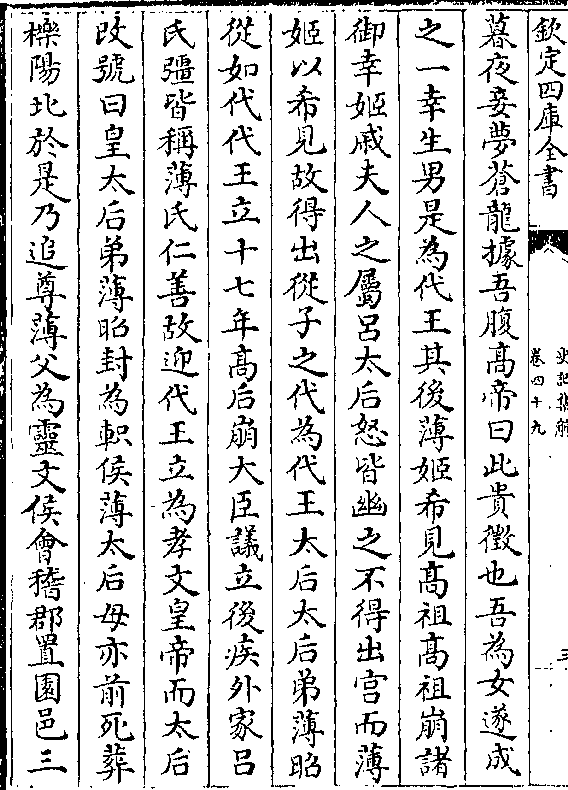 欽定四庫全書
史記集解
卷四十九
三
暮夜妾夢蒼龍據吾腹髙帝曰此貴徴也吾為女遂成
之一幸生男是為代王其後薄姬希見髙祖髙祖崩諸
御幸姬戚夫人之屬吕太后怒皆幽之不得出宫而薄
姬以希見故得出從子之代為代王太后太后弟薄昭
從如代代王立十七年髙后崩大臣議立後疾外家吕
氏彊皆稱薄氏仁善故迎代王立為孝文皇帝而太后
改號曰皇太后弟薄昭封為軹侯薄太后母亦前死葬
櫟陽北於是乃追尊薄父為靈文侯㑹稽郡置園邑三